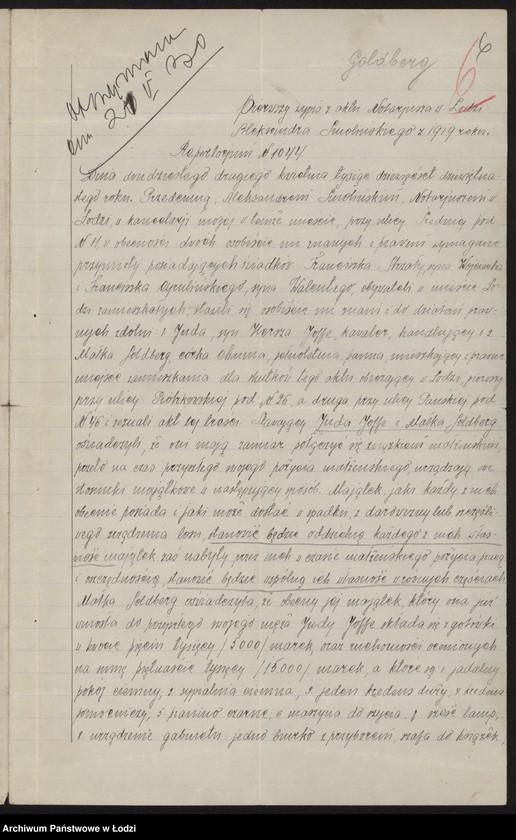 Otrzymano
dnia 2 V 20
Goldberg
6
6
Pierwszy wypis z aktu Notarjusza w Łodzi
Aleksandra Smolińskiego z 1919 roku.
Repertorjum N 1044
Dnia dwudziestego drugiego kwietnia tysiąc dziewięćset dziewiętna-
stego roku. Przedemną, Aleksandrem Smolińskim, Notarjuszem w
Łodzi, w kancelarji mojej w temże mieście, przy ulicy Średniej pod
N 11, w obecności dwóch osobiście mi znanych i prawem wymagane
przymioty posiadających świadków Franciszka Strzały, syna Wojciecha
i Franciszka syna Walentego, obywateli w mieście Ło-
dzi zamieszkałych, stawili się osobiście mi znani i do działań praw-
nych zdolni: 1 Juda, syn Hersza Joffe, kawaler, handlujący i 2
Małka Goldberg, córka pełnoletnia panna, mieszkający i prawne
miejsce zamieszkania dla skutków tego aktu obierający w Łodzi, pierwszy
przy ulicy Piotrkowskiej pod N 26, a druga przy ulicy Pańskiej pod
N 46 i zeznali akt tej treści: Stawający Juda Joffe i Małka Goldberg
oświadczyli, że oni mają zamiar połączyć się związkiem małżeńskim,
przeto na czas przyszłego swojego pożycia małżeńskiego urządzają swe
stosunki majątkowe w następujący sposób. Majątek, jaki każdy z nich
obecnie posiada i jaki może dostać w spadku, z darowizny lub szczęśli-
wego zrządzenia losu, stanowić będzie oddzielną każdego z nich włas-
ność majątek zaś nabyty przez nich w czasie małżeńskiego pożycia pracą
i oszczędnością, stanowić będzie wspólną ich własność w równych częściach.
Małka Goldberg oświadczyła, że obecny jej majątek, który ona już
wniosła do przyszłego swojego męża Judy Joffe składa się z gotówki
w kwocie pięciu tysięcy /5000/ marek, oraz ruchomości ocenionych
na sumę piętnaście tysięcy /15.000/ marek, a które są: 1 jadalny
pokój ciemny; 2 sypialnia ciemna, 3 jeden kredens duży, 4 kredens
pomocniczy, 5 pianino czarne; 6 maszyna do szycia, 7 sześć lamp,
8 urządzenie gabinetu: jedno biurko z przyborami, szafa do książek,
Archiwum Państwowe w Łodzi